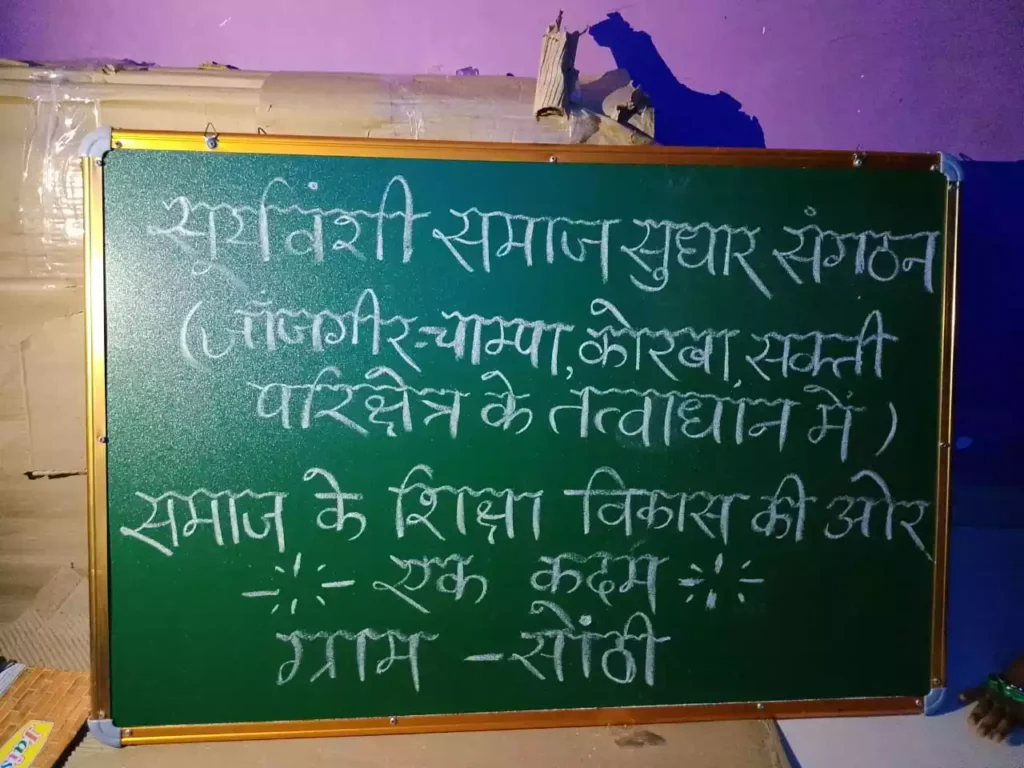 सूर्यवंशी समाज सुधार संगठन
(जाँजगीर-चाम्पा, कोरबा, सक्ती
परिक्षेत्र के तत्वाधान में)
समाज के शिक्षा विकास की ओर
एक कदम
ग्राम - सोंठी